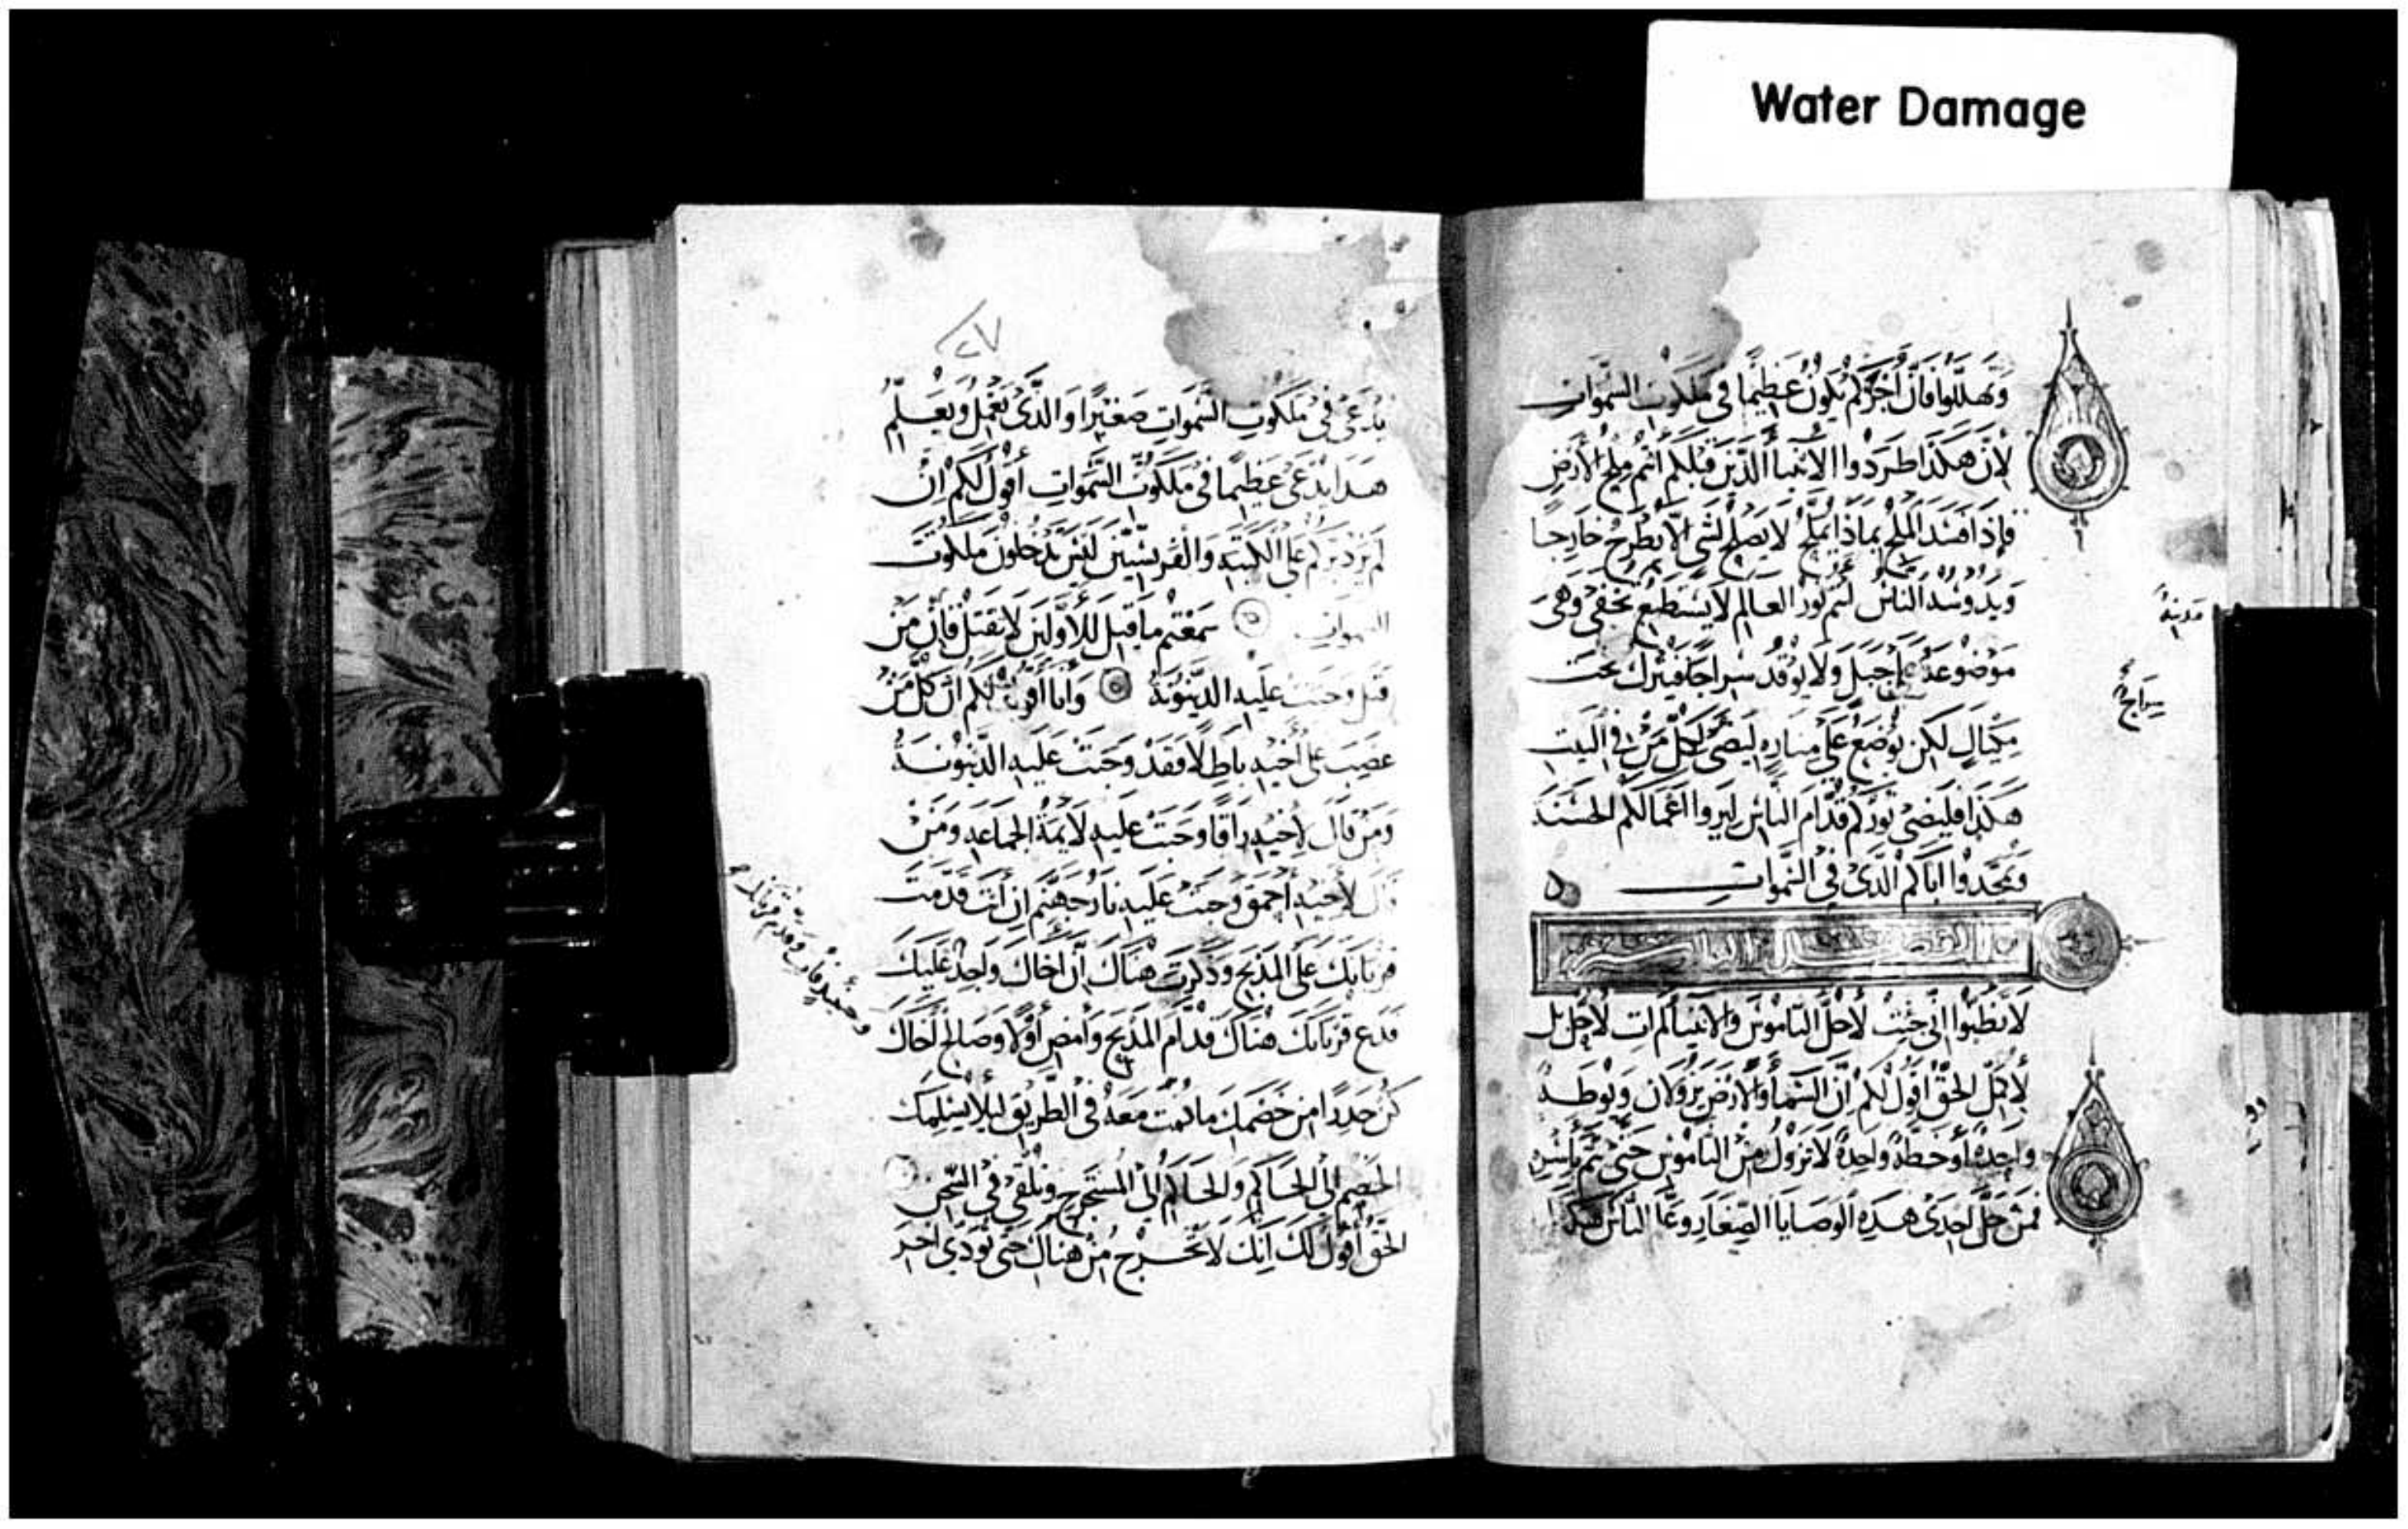 Water Damage
وتهللوا فان اجركم يكون عظيما فى ملكوت السموات
لان هكذا طردوا الانبيا الذين قبلكم انتم ملح الارض
فاذا فسد الملح بماذا يملح لا يصلح لشى الا يطرح خارجا
الناس انتم نور العالم لا يستطيع تخفى وهى
مدينة
موضوعة على جبل ولا يوقد سراجا فيترك تحت
سراج
مكيال لكن يوضع على مناره ليضى لكل من فى البيت
هكذا فليضى نوركم قدام الناس ليروا اعمالكم الحسنة
ويمجدوا اباكم الذى فى السموات
الفصل
لا تظنوا انى جيت لاحل الناموس والانبيا لم ات لاحل بل
لاكمل الحق اقول لكم ان السما والارض يزولان
واحدة او خطة واحدة لا تزول من الناموس حتى يتم
فمن حل احدى هذه الوصايا الصغار الناس هكذا
٤٧
يدعى فى ملكوت السموات صغيرا والذى يعمل ويعلم
هدا يدعى عظيما فى ملكوت السموات اقول لكم ان
لم يزد بركم على الكتبه والفريسيين ليس تدخلون ملكوت
السموات سمعتم ما قيل للاولين لا تقتل فان من
قتل وجبت عليه الدينونة وانا اقول لكم ان كل من
غضب على اخيه باطلا فقد وجبت عليه الدينونة
ومن قال لاخيه راقا وجبت عليه لايمة الجماعه ومن
قال لاخيه احمق وجبت عليه نار جهنم ان انت قدمت
قربانك على المذبح وذكرت هناك ان اخاك واجد عليك
فدع قربانك هناك قدام المذبح وامض اولا وصالح اخاك
وحينيذ فات وقدم قربانك
كن حدرا من خصمك ما دمت معه فى الطريق ليلا يسلمك
الخصم الى الحاكم والحاكم الى المستخرج وتلقى فى السجن
الحق اقول لك انك لا تخرج من هناك حتى تودى اخر